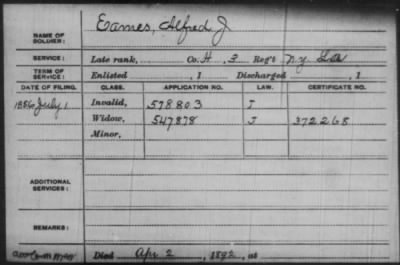 NAME OF SOLDIER: Eames, Alfred J
SERVICE: Late rank, Co. H, 3 Reg't N.Y. L A
TERM OF SERVICE: Enlisted , 1 Discharged , 1
DATE OF FILING. CLASS. APPLICATION NO. LAW. CERTIFICATE NO.
1886 July 1 Invalid, 578803 J
Widow, 547878 J 372268
Minor,
ADDITIONAL SERVICES:
REMARKS:
Died Apr 2, 1892, at